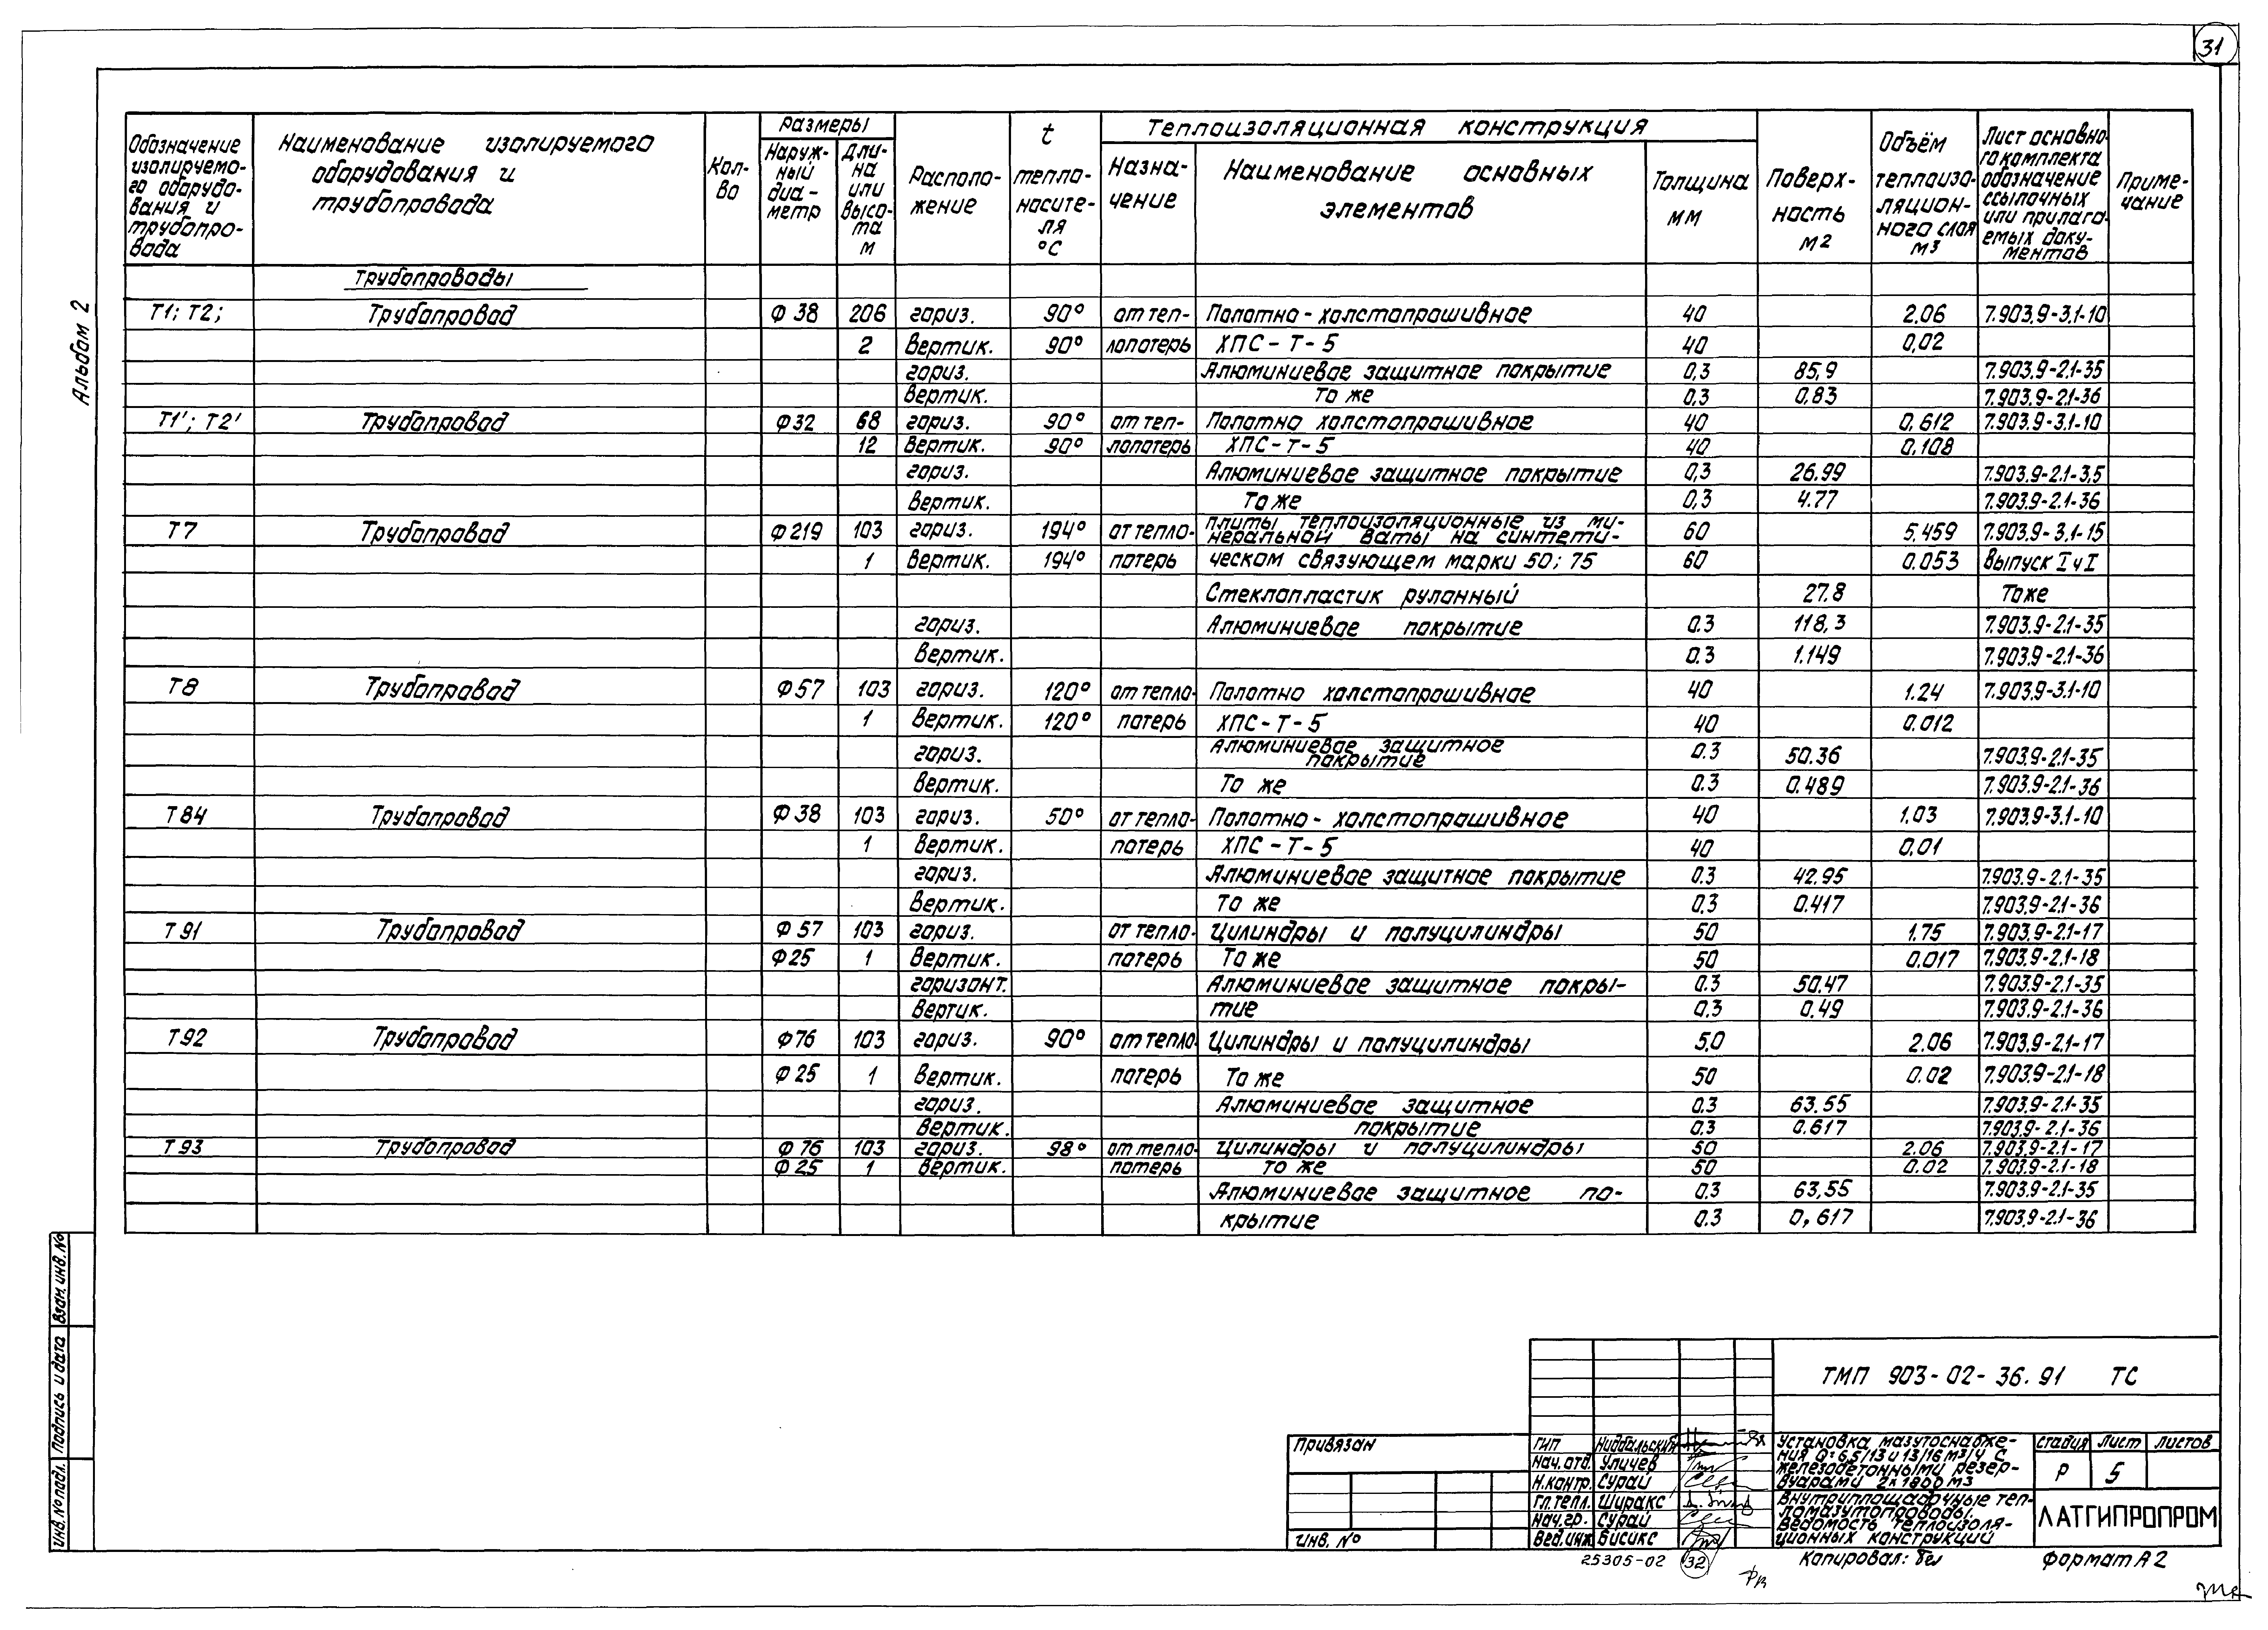 31
Альбом 2
Обозначение изолируемого оборудования и трубопровода
Наименование изолируемого оборудования и трубопровода
Кол-во
Размеры
Наружный диаметр
Длина или высота м
Расположение
t теплоносителя °С
Теплоизоляционная конструкция
Назначение
Наименование основных элементов
Толщина мм
Поверхность м2
Объём теплоизоляционного слоя м3
Лист основного комплекта обозначение ссылочных или прилагаемых документов
Примечание
Трубопроводы
Т1; Т2; Трубопровод Ф 38 206 гориз. 90° от теп- Полотно-холстопрошивное 40 2.06 7.903.9-3.1-10
2 Вертик. 90° лопотерь ХПС-Т-5 40 0,02
гориз. Алюминиевое защитное покрытие 0,3 85,9 7.903.9-2.1-35
Вертик. То же 0,3 0,83 7.903.9-2.1-36
Т1'; Т2' Трубопровод Ф32 68 гориз. 90° от теп- Полотно холстопрошивное 40 0,612 7.903.9-3.1-10
12 Вертик. 90° лопотерь ХПС-Т-5 40 0,108
гориз. Алюминиевое защитное покрытие 0,3 26.99 7.903.9-2.1-3,5
Вертик. То же 0,3 4.77 7.903.9-2.1-36
Т7 Трубопровод Ф219 103 гориз. 194° от тепло- плиты теплоизоляционные из ми-
неральной ваты на синтети- 60 5.459 7.903.9-3.1-15
1 Вертик. 194° потерь ческом связующем марки 50; 75 60 0.053 Выпуск I ч I
Стеклопластик рулонный 27.8 То же
гориз. Алюминиевое покрытие 0.3 118,3 7.903.9-2.1-35
Вертик. 0.3 1.149 7.903.9-2.1-36
Т8 Трубопровод Ф57 103 гориз. 120° от тепло- Полотно холстопрошивное 40 1.24 7.903.9-3.1-10
1 Вертик. 120° потерь ХПС-Т-5 40 0.012
гориз. Алюминиевое защитное покрытие 0.3 50.36 7.903.9-2.1-35
Вертик. То же 0.3 0.489 7.903.9-2.1-36
Т84 Трубопровод Ф38 103 гориз. 50° от тепло- Полотно-холстопрошивное 40 1.03 7.903.9-3.1-10
1 Вертик. потерь ХПС-Т-5 40 0.01
гориз. Алюминиевое защитное покрытие 0.3 42.95 7.903.9-2.1-35
Вертик. То же 0.3 0.417 7.903.9-2.1-36
Т91 Трубопровод Ф57 103 гориз. от тепло- Цилиндры и полуцилиндры 50 1.75 7.903.9-2.1-17
Ф25 1 Вертик. потерь То же 50 0.017 7.903.9-2.1-18
горизонт. Алюминиевое защитное покры- 0.3 50.47 7.903.9-2.1-35
Вертик. тие 0.3 0.49 7.903.9-2.1-36
Т92 Трубопровод Ф76 103 гориз. 90° от тепло Цилиндры и полуцилиндры 5,0 2.06 7.903.9-2.1-17
Ф25 1 Вертик. потерь То же 50 0.02 7.903.9-2.1-18
гориз. Алюминиевое защитное 0.3 63.55 7.903.9-2.1-35
Вертик. покрытие 0.3 0.617 7.903.9-2.1-36
Т93 Трубопровод Ф76 103 гориз. 98° от тепло- Цилиндры и полуцилиндры 50 2.06 7.903.9-2.1-17
Ф25 1 Вертик. потерь то же 50 0.02 7.903.9-2.1-18
Алюминиевое защитное по- 0.3 63,55 7.903.9-2.1-35
крытие 0.3 0,617 7.903.9-2.1-36
Инв. № подл. Подпись и дата Взам. инв. №
Привязан
Инв. №
ГИП Нидбальский
Нач. отд. Уличев
Н.контр. Сурай
Гл.тепл. Ширакс
Нач.гр. Сурай
Вед.инж Бисикс
ТМП 903-02-36.91 ТС
Установка мазутоснабже-
ния Q=6,5/13 и 13/16 м3/ч с
железобетонными резер-
вуарами 2х1800 м3
Стадия Лист Листов
Р 5
Внутриплощадочные теп-
ломазутопроводы.
Ведомость теплоизоля-
ционных конструкций
ЛАТГИПРОПРОМ
25305-02 32
Копировал:
Формат А2